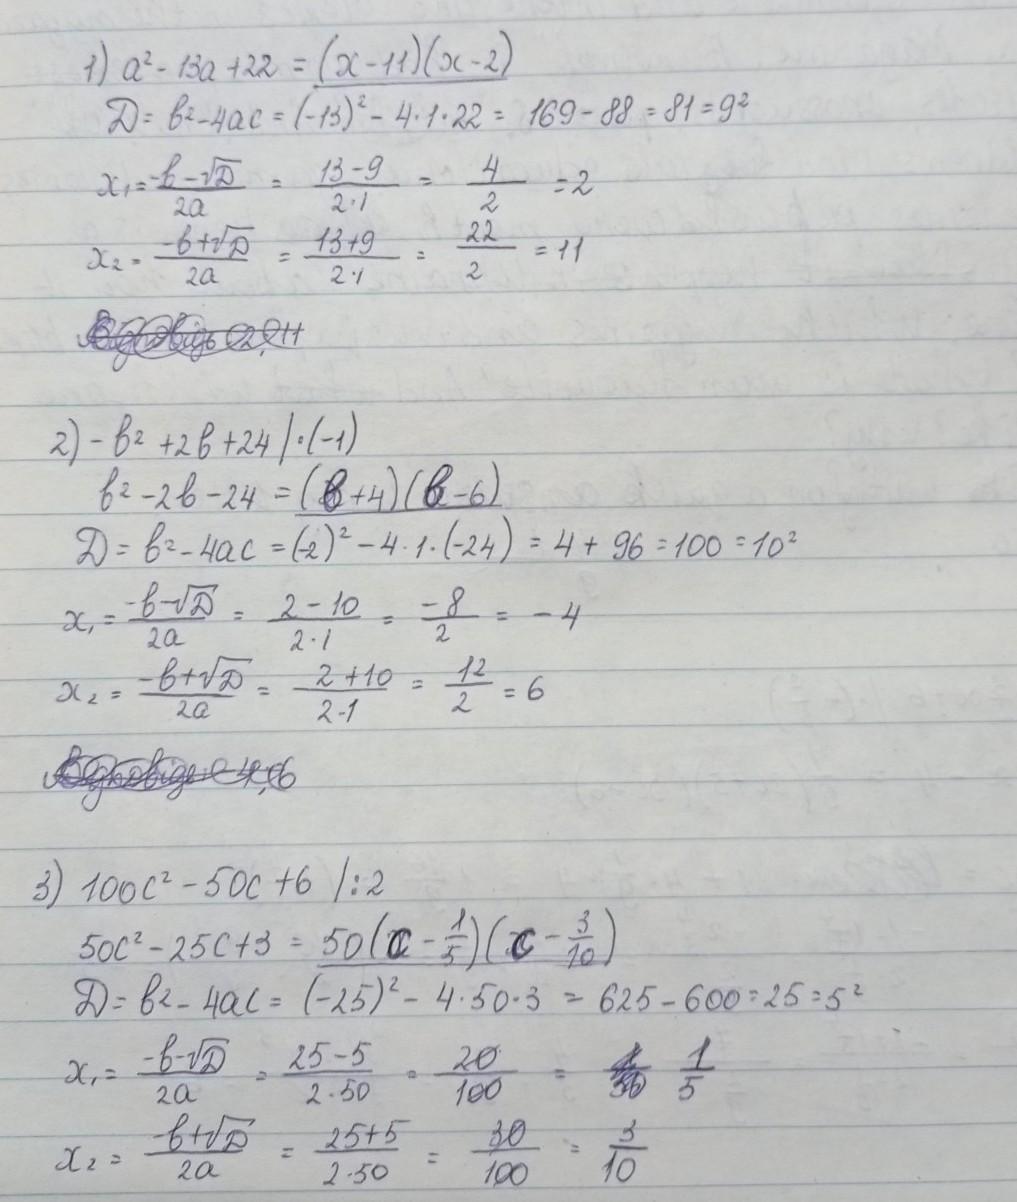 1) a² - 13a + 22 = (x - 11)(x - 2)
D = b² - 4ac = (-13)² - 4·1·22 = 169 - 88 = 81 = 9²
x₁ = (-b - √D)/(2a) = (13 - 9)/(2·1) = 4/2 = 2
x₂ = (-b + √D)/(2a) = (13 + 9)/(2·1) = 22/2 = 11
2) - b² + 2b + 24 | · (-1)
b² - 2b - 24 = (b + 4)(b - 6)
D = b² - 4ac = (-2)² - 4·1·(-24) = 4 + 96 = 100 = 10²
x₁ = (-b - √D)/(2a) = (2 - 10)/(2·1) = -8/2 = -4
x₂ = (-b + √D)/(2a) = (2 + 10)/(2·1) = 12/2 = 6
3) 100c² - 50c + 6 | : 2
50c² - 25c + 3 = 50(c - 1/5)(c - 3/10)
D = b² - 4ac = (-25)² - 4·50·3 = 625 - 600 = 25 = 5²
x₁ = (-b - √D)/(2a) = (25 - 5)/(2·50) = 20/100 = 1/5
x₂ = (-b + √D)/(2a) = (25 + 5)/(2·50) = 30/100 = 3/10